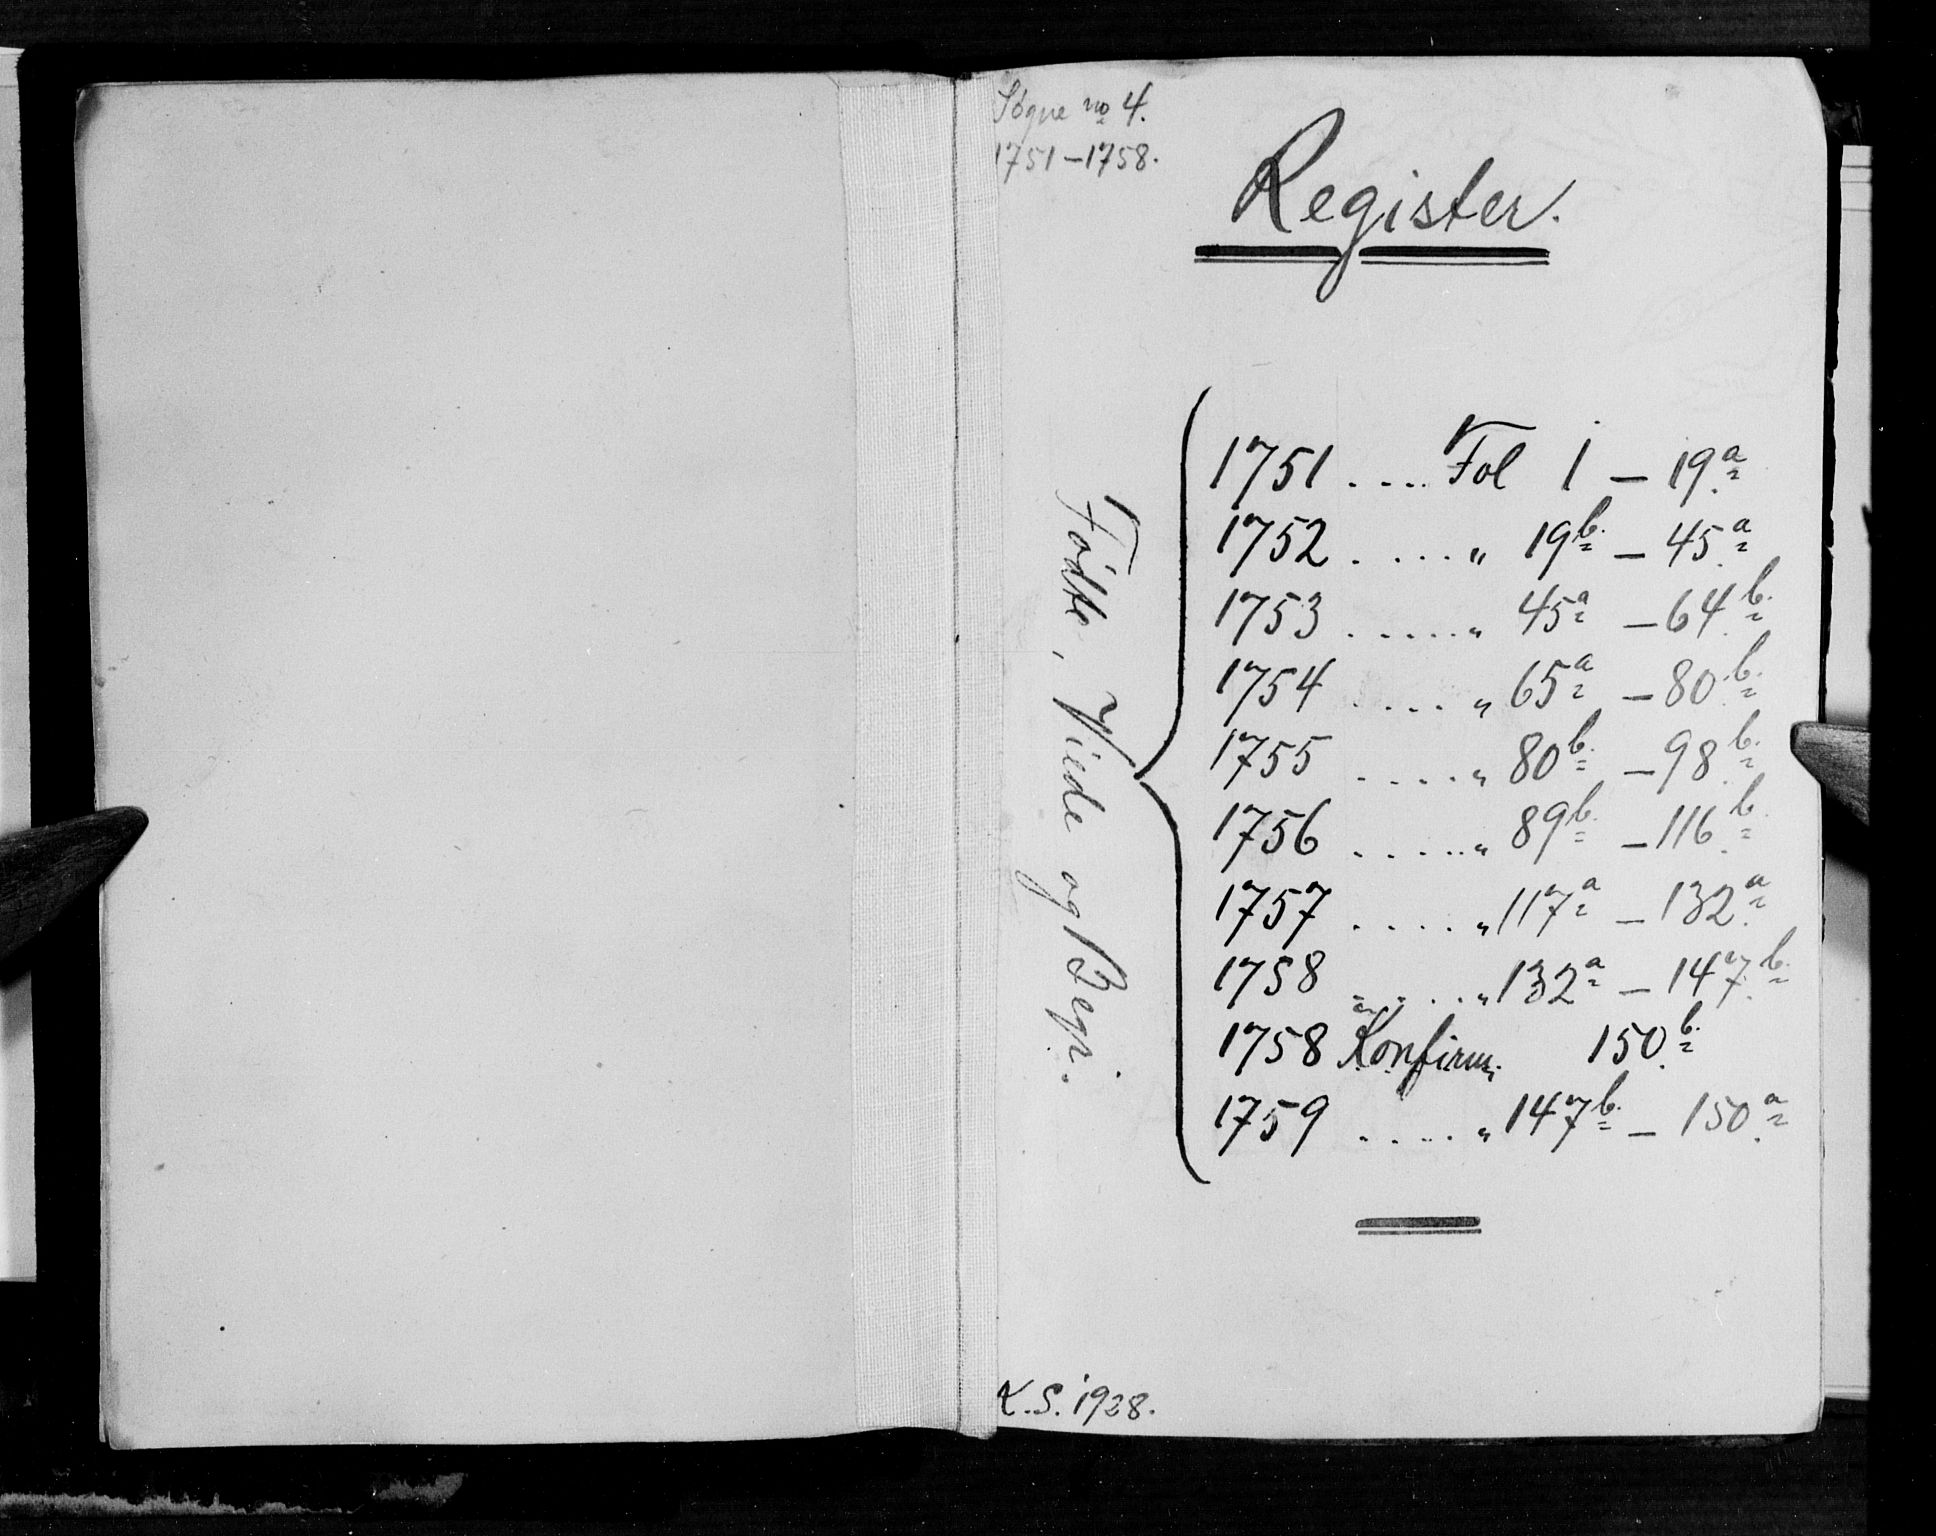 Søgne no 4.
1751–1758.
Register.
Fødte, Viede og Begr.
1751 .... Fol 1 – 19a
1752 .... " 19b. – 45a
1753 ..... " 45a – 64b.
1754 .... " 65a – 80b.
1755 .... " 80b. – 98b.
1756 ..... " 89b. – 116b.
1757 .... " 117a – 132a
1758 .... " 132a – 147b.
1758 Konfirm. 150b.
1759 .... " 147b. – 150a
K.S. 1928.